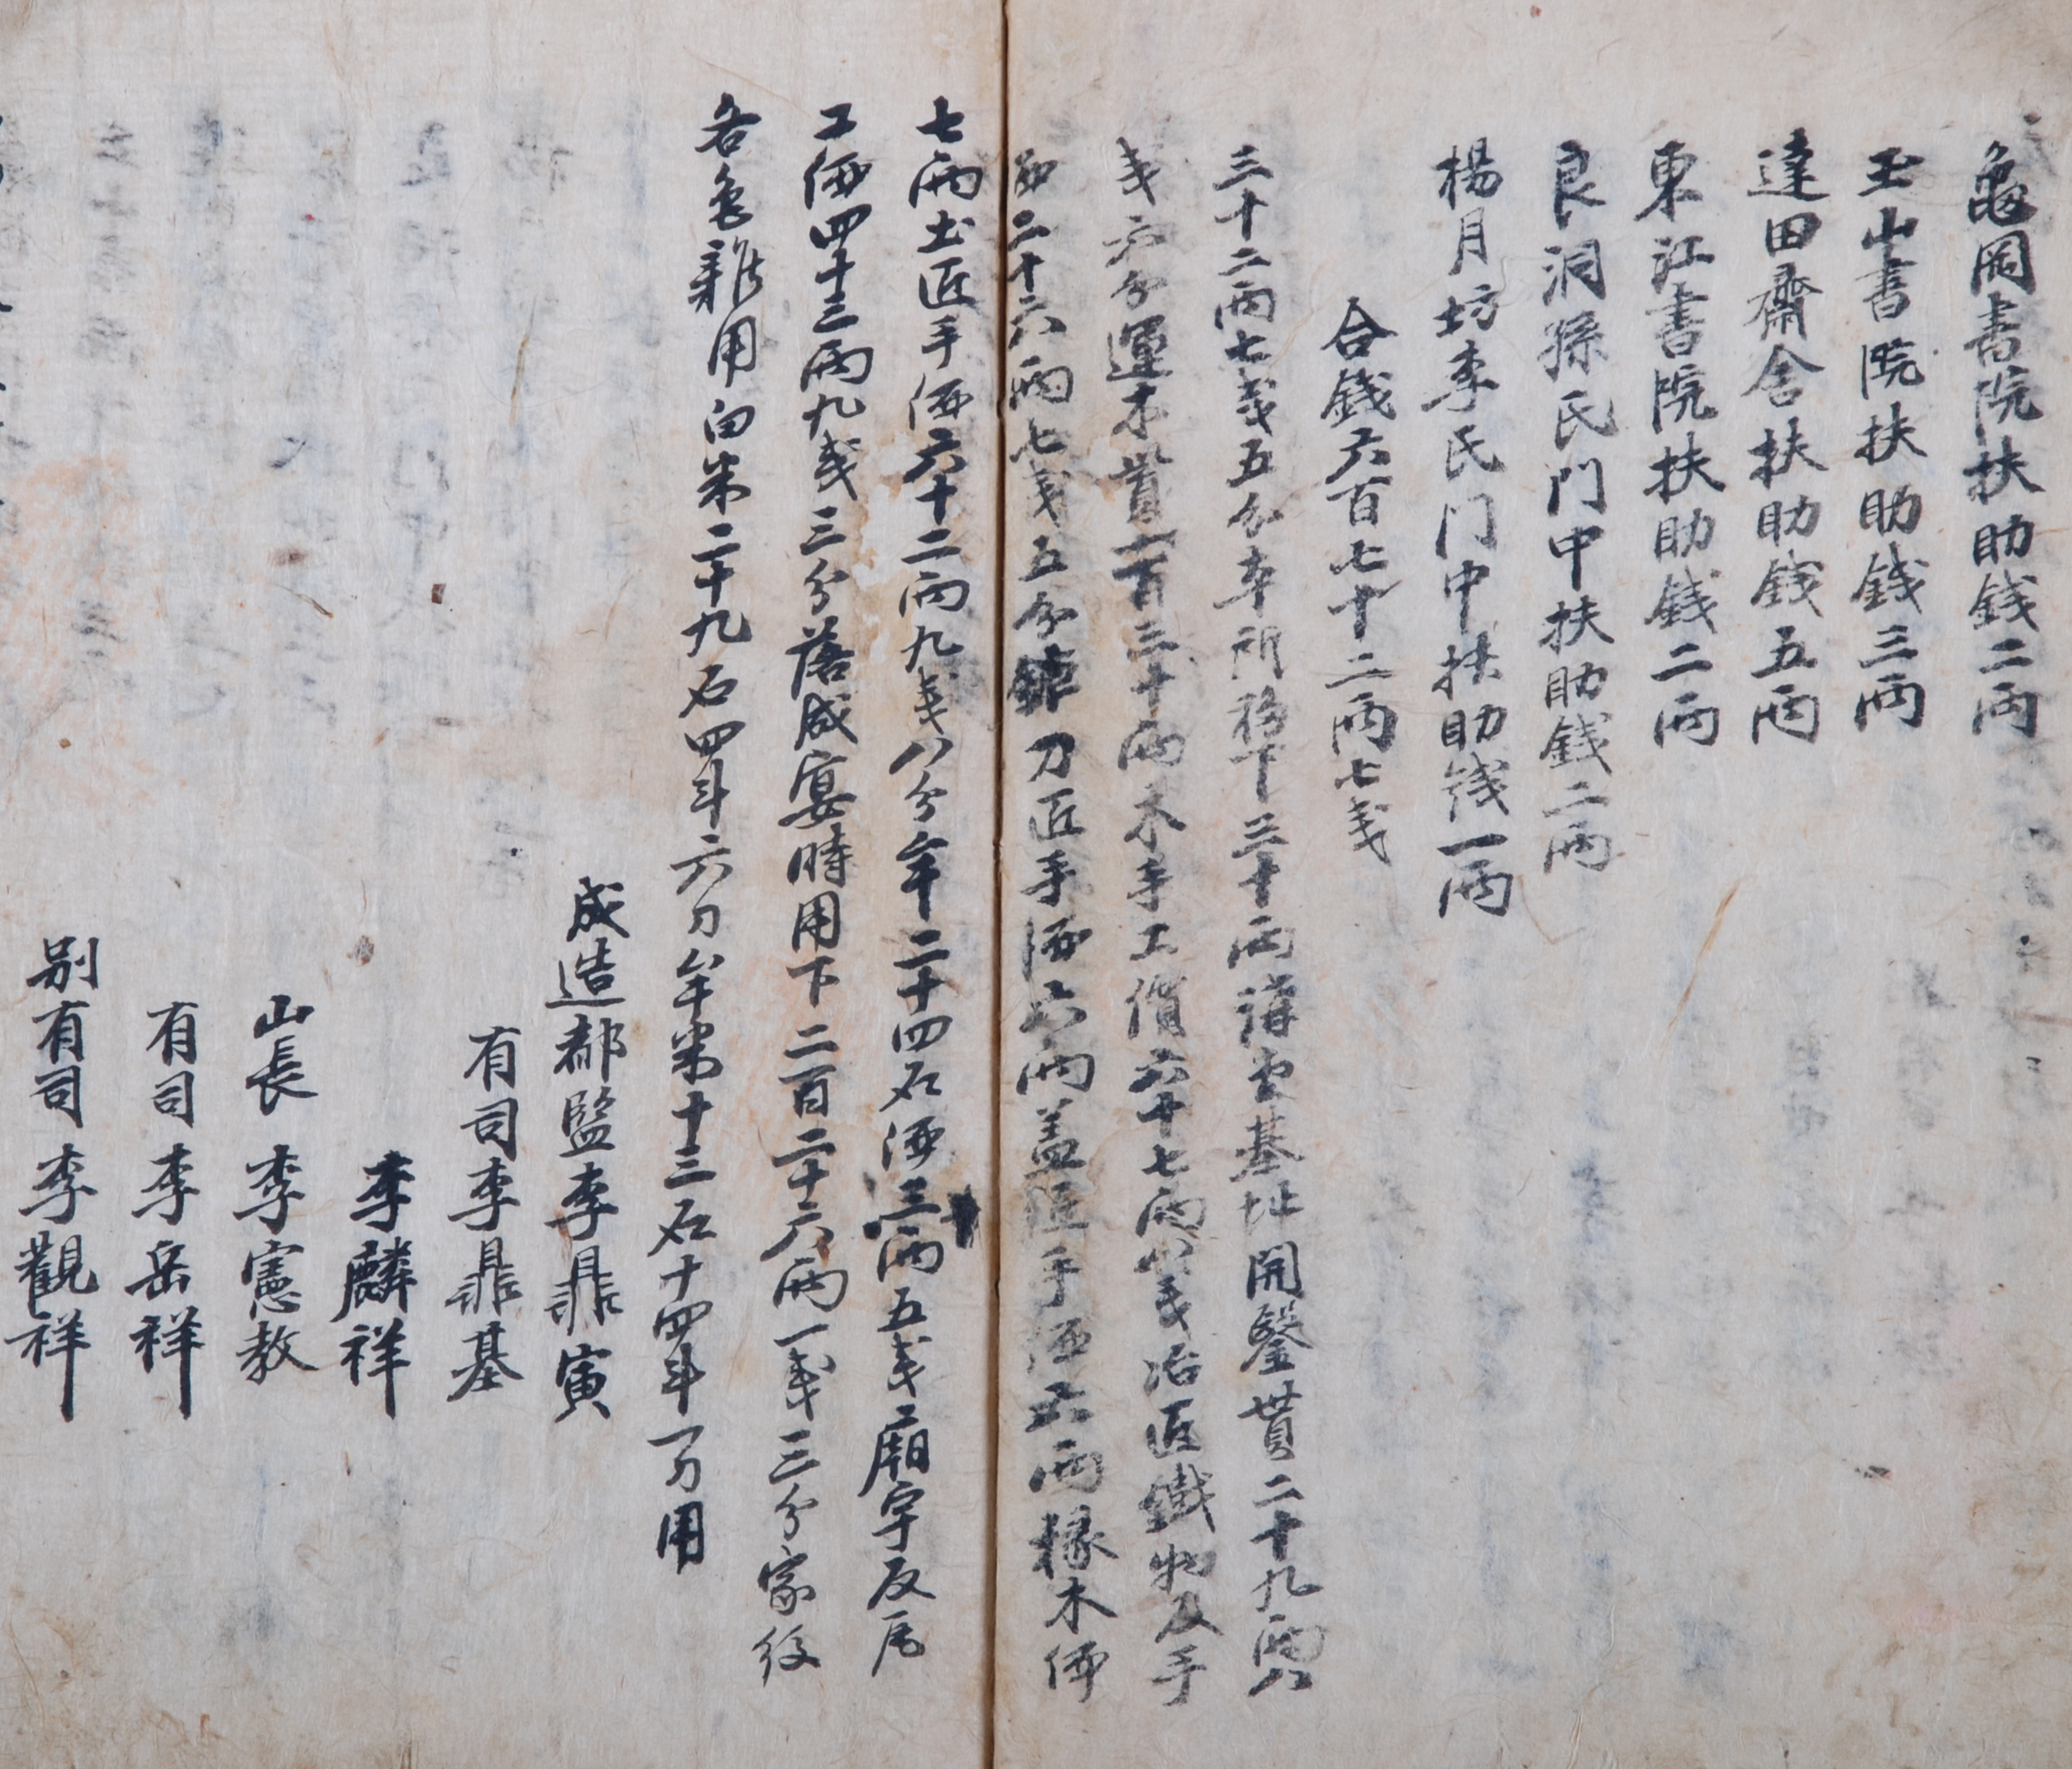 龜岡書院扶助錢二兩
玉山書院扶助錢三兩
達田齋舍扶助錢五兩
東江書院扶助錢二兩
良洞孫氏門中扶助錢二兩
楊月坊李氏門中扶助錢一兩
合錢六百七十二兩七戔
三十二兩七戔五分本所移下三十兩講堂基址開鑿貰二十九兩八
戔六分運木貰一百三十兩木手工價六十七兩八戔冶匠鐵物及手
二十六兩七戔五分 刀匠手価六兩盖匠手価六兩椽木価
七兩土匠手価六十二兩九戔八分牟二十四石価三兩五戔廟宇反瓦
工価四十三兩九戔三分落成宴時用下二百二十六兩一戔三分家後
各色雜用白米二十九石四斗六刀牟米十三石十四斗一刀用
成造都監李鼎寅
有司李鼎基
李麟祥
山長李憲教
有司李岳祥
別有司李觀祥